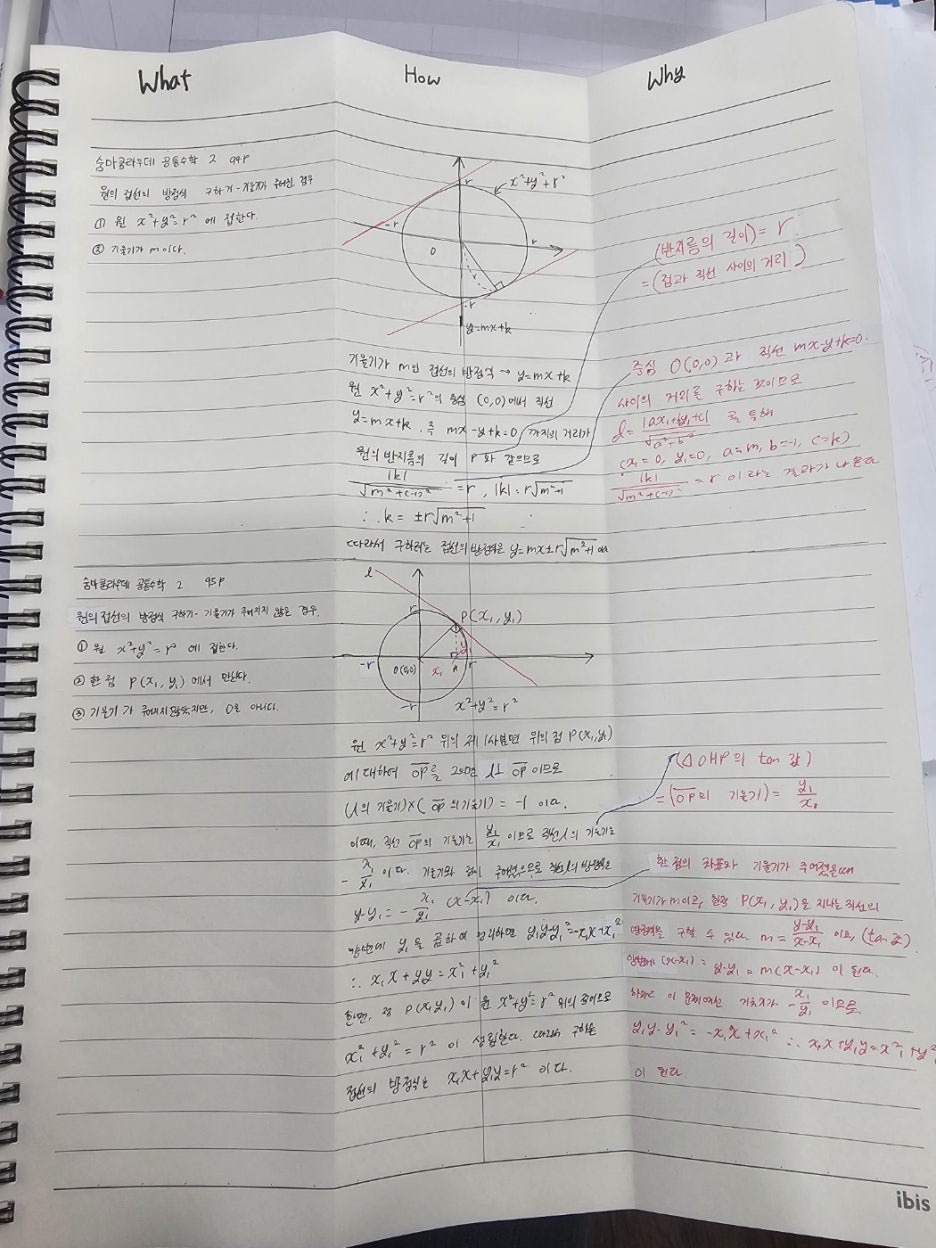 What
How
Why
숨마쿰라우데 공통수학 2 94P
원의 접선의 방정식 구하기 - 기울기가 주어진 경우
① 원 x²+y²=r² 에 접한다.
② 기울기가 m이다.
x²+y²+r²
r
-r
r
O
r
-r
y=mx+k
기울기가 m인 접선의 방정식 → y=mx+k
원 x²+y²=r²의 중심 (0,0)에서 직선
y=mx+k, 즉 mx-y+k=0 까지의 거리가
원의 반지름의 길이 r와 같으므로
|k|/√(m²+(-1)²) = r, |k|=r√(m²+1)
∴ k = ±r√(m²+1)
따라서 구하려는 접선의 방정식은 y=mx±r√(m²+1) 이다
(반지름의 길이) = r
= (점과 직선 사이의 거리)
중심 O(0,0) 과 직선 mx-y+k=0.
사이의 거리를 구하는 것이므로
d = |ax₁+by₁+c|/√(a²+b²) 를 통해
(x₁=0, y₁=0, a=m, b=-1, c=k)
|k|/√(m²+(-1)²) = r 이라는 결과가 나온다
숨마쿰라우데 공통수학 2 95P
원의 접선의 방정식 구하기 - 기울기가 주어지지 않은 경우.
① 원 x²+y²=r² 에 접한다.
② 한 점 P(x₁, y₁) 에서 만난다.
③ 기울기가 주어지지 않았지만, 0은 아니다.
l
r
P(x₁, y₁)
y₁
-r
O(0,0)
x₁
H
r
-r
x²+y²=r²
원 x²+y²=r² 위의 제1사분면 위의 점 P(x₁,y₁)
에 대하여 OP를 그으면 l⊥OP 이므로
(l의 기울기)×(OP의 기울기) = -1 이다.
이때, 직선 OP의 기울기는 y₁/x₁ 이므로 직선 l의 기울기는
-x₁/y₁ 이다. 기울기와 점이 주어졌으므로 직선 l의 방정식은
y-y₁ = -x₁/y₁ (x-x₁) 이다.
양변에 y₁을 곱하여 정리하면 y₁y-y₁²=-x₁x+x₁²
∴ x₁x + y₁y = x₁² + y₁²
한편, 점 P(x₁,y₁)이 원 x²+y²=r² 위의 점이므로
x₁²+y₁²=r² 이 성립한다. 따라서 구하는
접선의 방정식은 x₁x+y₁y=r² 이다.
(△OHP의 tan 값)
=(OP의 기울기)= y₁/x₁
한 점의 좌표와 기울기가 주어졌을 때
기울기가 m이고, 한점 P(x₁,y₁)을 지나는 직선의
방정식을 구할 수 있다. m = y-y₁/x-x₁ 이고, (tan 값)
양변에 (x-x₁) = y-y₁ = m(x-x₁) 이 된다.
이 문제에선 기울기가 -x₁/y₁ 이므로
y₁y-y₁² = -x₁x+x₁² ∴ x₁x+y₁y=x₁²+y₁²
이 된다.
ibis